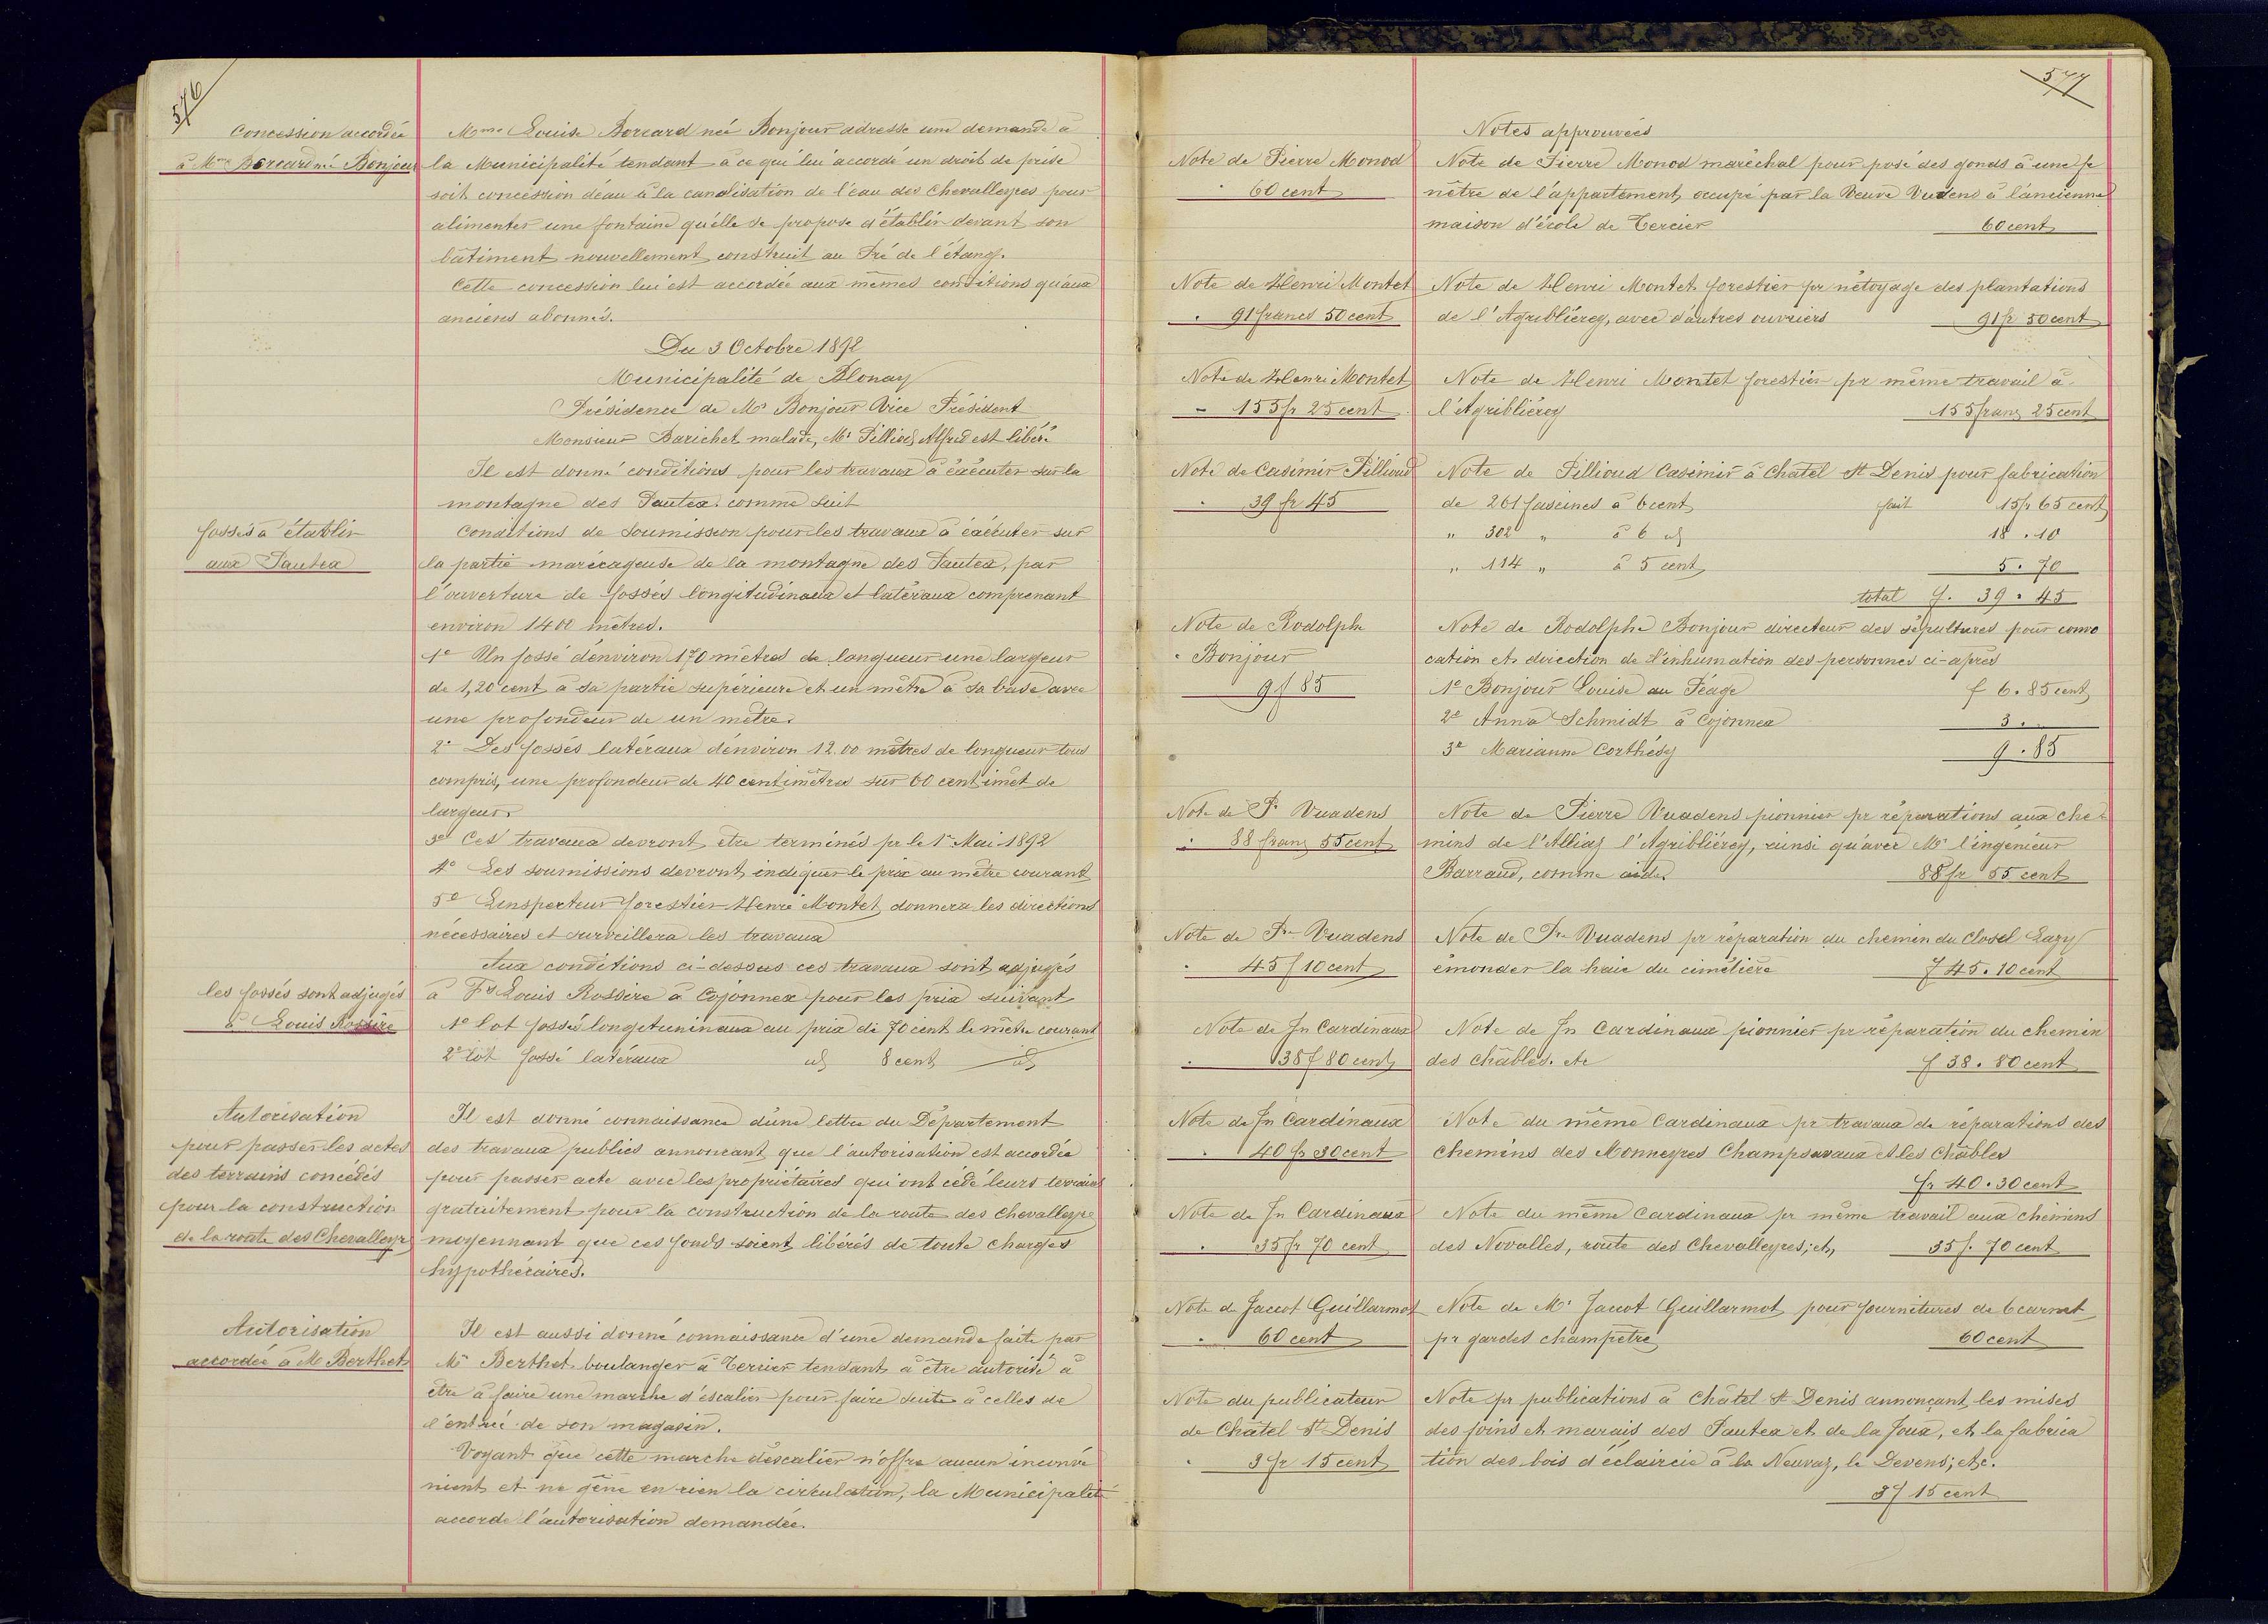 576
Concession accordée
à Mme Borcard née Bonjour
Mme Louise Borcard née Bonjour adresse une demande à
la Municipalité tendant à ce qu'lui accordé un droit de prise
soit concession d'eau à la canalisation de l'eau des Chevalleyres pour
alimenter une fontaine qu'elle se propose d'établir devant son
bâtiment nouvellement construit au Pré de l'étang.
Cette concession lui est accordée aux mêmes conditions qu'aux
anciens abonnés.
Du 3 Octobre 1892
Municipalité de Blonay
Présidence de Mr Bonjour Vice Président
Monsieur Barichet malade, Mr Pilliod Alfred est libéré
Il est donné conditions pour les travaux à éxécuter sur la
montagne des Pautex comme suit
fossés à établir
aux Pautex
Conditions de soumission pour les travaux à éxécuter sur
la partie marécageuse de la montagne des Pautex, par
l'ouverture de fossés longitudinaux et latéraux comprenant
environ 1400 mètres.
1º Un fossé d'environ 170 mètres de longueur une largeur
de 1,20 cent à sa partie supérieure et un mètre à sa base avec
une profondeur de un mètre.
2º Des fossés latéraux d'environ 12,00 mètres de longueur tous
compris, une profondeur de 40 centimètres sur 60 centimèt de
largeur.
3º Ces travaux devront être terminés pr le 1er Mai 1892
4º Les soumissions devront indiquer le prix au mètre courant
5º L'inspecteur forestier Henri Montet donnera les directions
nécessaires et surveillera les travaux
Aux conditions ci-dessus ces travaux sont adjugés
les fossés sont adjugés
à Louis Rossire
à Fs Louis Rossire à Cojonnex pour les prix suivant
1º lot fossés longetuninaux au prix de 70 cent le mètre courant
2º lot fossé latéraux id 8 cent id
Autorisation
pour passer les actes
des terrains concédés
pour la construction
de la route des Chevalleyr
Il est donné connaissance d'une lettre du Département
des travaux publics annoncant que l'autorisation est accordée
pour passer acte avec les propriétaires qui ont cédé leurs terrains
gratuitement pour la construction de la route des Chevalleyre
moyennant que ces fonds soient libérés de toute charges
hypothécaires.
Autorisation
accordée à Mr Berthet
Il est aussi donné connaissance d'une demande faite par
Mr Berthet boulanger à Tercier tendant à être autorisé à
être à faire une marche d'escalier pour faire suite à celles de
l'entrée de son magasin.
Voyant que cette marche d'escalier n'offre aucun inconvé
nient et ne gêne en rien la cirkulation, la Municipalité
accorde l'autorisation demandée.
577
Notes approuvées
Note de Pierre Monod
60 cent
Note de Pierre Monod maréchal pour posé des gonds à une fe
nêtre de l'appartement occupé par la Veuve Vuadens à l'ancienne
maison d'école de Tercier 60 cent
Note de Henri Montet
91 francs 50 cent
Note de Henri Montet forestier pr nétoyage des plantations
de l'Agribliérey, avec d'autres ouvriers 91 fr 50 cent
Note de Henri Montet
155 fr 25 cent
Note de Henri Montet forestier pr même travail à
l'Agribliérey 155 franc 25 cent
Note de Casimir Pillioud
39 fr 45
Note de Pillioud Casimir à Chatel St Denis pour fabrication
de 261 fascines à 6 cent fait 15 fr 65 cent
" 302 " à 6 id 18 . 10
" 114 " à 5 cent 5 . 70
total f. 39 . 45
Note de Rodolphe
Bonjour
9 f 85
Note de Rodolphe Bonjour directeur des sépultures pour convo
cation et direction de l'inhumation des personnes ci-après
1º Bonjour Louise au Péage f 6 . 85 cent
2º Anna Schmidt à Cojonnex 3 .
3º Marianne Corthésy 9 . 85
Note de Pr Vuadens
88 franc 55 cent
Note de Pierre Vuadens pionnier pr réparations aux che
mins de l'Alliaz l'Agribliérey, ainsi qu'avec Mr l'ingénieur
Barraud, comme aide. 88 fr 55 cent
Note de Fs Vuadens
45 f 10 cent
Note de Fs Vuadens pr réparation du chemin du Closel Lazy
émonder la haie du cimetière f 45 . 10 cent
Note de Jn Cardinaux
38 f 80 cent
Note de Jn Cardinaux pionnier pr réparation du chemin
des Châbles. etc f 38 . 80 cent
Note de Jn Cardinaux
40 fr 30 cent
Note du même Cardinaux pr travaux de réparations des
chemins des Monneyres Champsavaux et les Châbles
fr 40 . 30 cent
Note de Jn Cardinaux
35 fr 70 cent
Note du même Cardinaux pr même travail aux chemins
des Novalles, route des Chevalleyres; etc, 35 f. 70 cent
Note de Jaccot Guillarmot
60 cent
Note de Mr Jaccot Guillarmot pour fournitures de 6 carnet
pr gardes champêtre 60 cent
Note du publicateur
de Châtel St Denis
3 fr 15 cent
Note pr publications à Châtel St Denis annonçant les mises
des foins et marais des Pautex et de la Joux, et la fabrica
tion des bois d'éclaircie à la Neuvaz, le Devens; etc.
3 f 15 cent